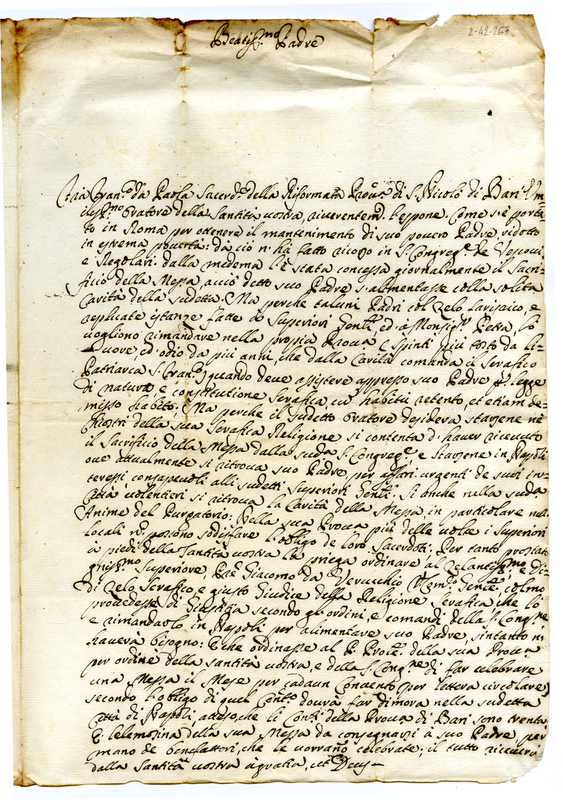 2-42-267
Beatiss.mo Padre
Fra Fran.co da Paola Sacerd.e della Riformata Prou.a di S. Nicolò di Bari Um
iliss.mo Oratore della Santità vostra, riverentem.te l'espone. Come s'è porta
to in Roma per ottenere il mantenimento di suo povero Padre ridotto
in estrema povertà: da ciò n'hà fatto ricorso in S. Congreg.e de Vescovi,
e Regolari: dalla medema l'è stata concessa giornalmente il Sacri-
ficio della Messa acciò detto suo Padre s'alimentasse colla solita
Carità della sudetta. Mà perche taluni Padri col Zelo farisaico, e
replicate istanze fatte da Superiori Gen.li ed à Monsig.r lo
vogliono rimandare nella propria Prou.a e spinti più tosto da li-
uore, ed odio da più anni, che dalla Carità comanda il Serafico
Patriarca S. Fran.co quando deve assistere appresso suo Padre p legge
di natura e constitutione Serafica cu' habitu retento, et etiam de-
misso habito. Mà perche il sudetto Oratore desidera starsene ne
Chiostri della sua Serafica Religione si contenta d'haver ricevuto
il Sacrificio della Messa dalla suda S. Congreg.e e starsene in Napoli
ove attualmente si ritrova suo Padre per affari urgenti de suoi in-
teressi consapevoli alli sudetti Superiori Gen.li: Si anche nella suda
Città volentieri si ritrova la Carità della Messa in particolare nell'
Anime del Purgatorio: Nella sua Prou.a più delle volte i Superiori
locali n' possono sodisfare l'obligo de loro Sacerdoti. Per tanto prostrato
à piedi della Santità vostra la priega ordinare al Zelantiss.mo, e Di-
gniss.mo Superiore, P.re Giacomo da Verucchio Gen.le colmo
di Zelo Serafico, e giusto Giudice della Religione Serafica che lo
provedesse di Giustitia secondo gl'ordini, e comandi della S. Cong.ne
e rimandarlo in Napoli per alimentare suo Padre, sintanto n'
haverà bisogno: E che ordinasse al P. Prou.le della sua Prou.a
per ordine della santità vostra, e della S. Cong.ne di far celebrare
una Messa il Mese per cadaun Convento per lettera circolare,
secondo l'obligo di quel Con.to dovrà far dimora nella sudetta
Città di Napoli, atteso, che li Con.ti della Prou.a di Bari sono trenta
E l'elemosina della sua Messa da consegnarsi à suo Padre per
mano de benefattori, che le vorranno celebrate; il tutto riceverà
dalla Santità vostra à gratia, ut Deus